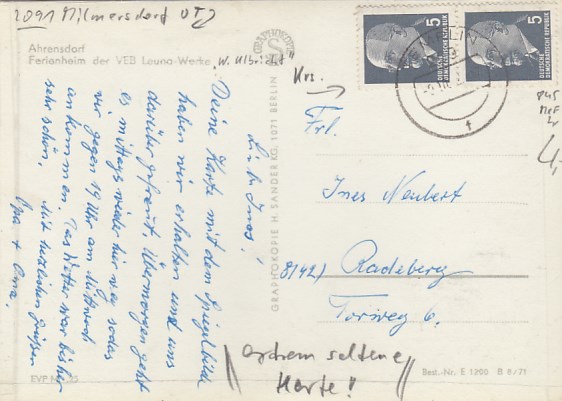 2091 Milmersdorf UTJ
Ahrensdorf
Ferienheim der VEB Leuna-Werke "W. Ulbricht"
Liebe Ines!
Deine Karte mit dem Spiegelbild
haben wir erhalten und uns
darüber gefreut. Übermorgen geht
es mittags wieder hier weg sodas
wir gegen 19 Uhr am Mittwoch
ankommen. Das Wetter war bisher
sehr schön. Mit herzlichen Grüßen
Opa + Oma.
EVP
GRAPHOKOPIE H. SANDER KG. 1071 BERLIN
GRAPHOKOPIE
5
DEUTSCHE DEMOKRATISCHE REPUBLIK
5
DEUTSCHE DEMOKRATISCHE REPUBLIK
Krs.
845
MeF
4,-
Frl.
Ines Neubert
8142) Radeberg
Torweg 6.
extrem seltene
Karte!!
Best.-Nr. E 1290 B 8/71